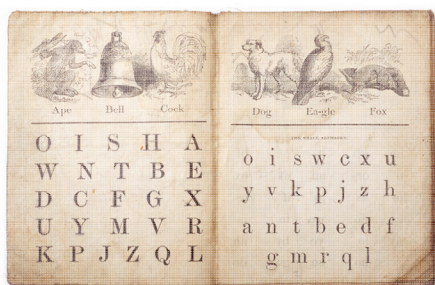 Ape Bell Cock
O I S H A
W N T B E
D C F G X
U Y M V R
K P J Z Q L
Dog Ea-gle Fox
THE SMALL ALPHABET.
o i s w c x u
y v k p j z h
a n t b e d f
g m r q l